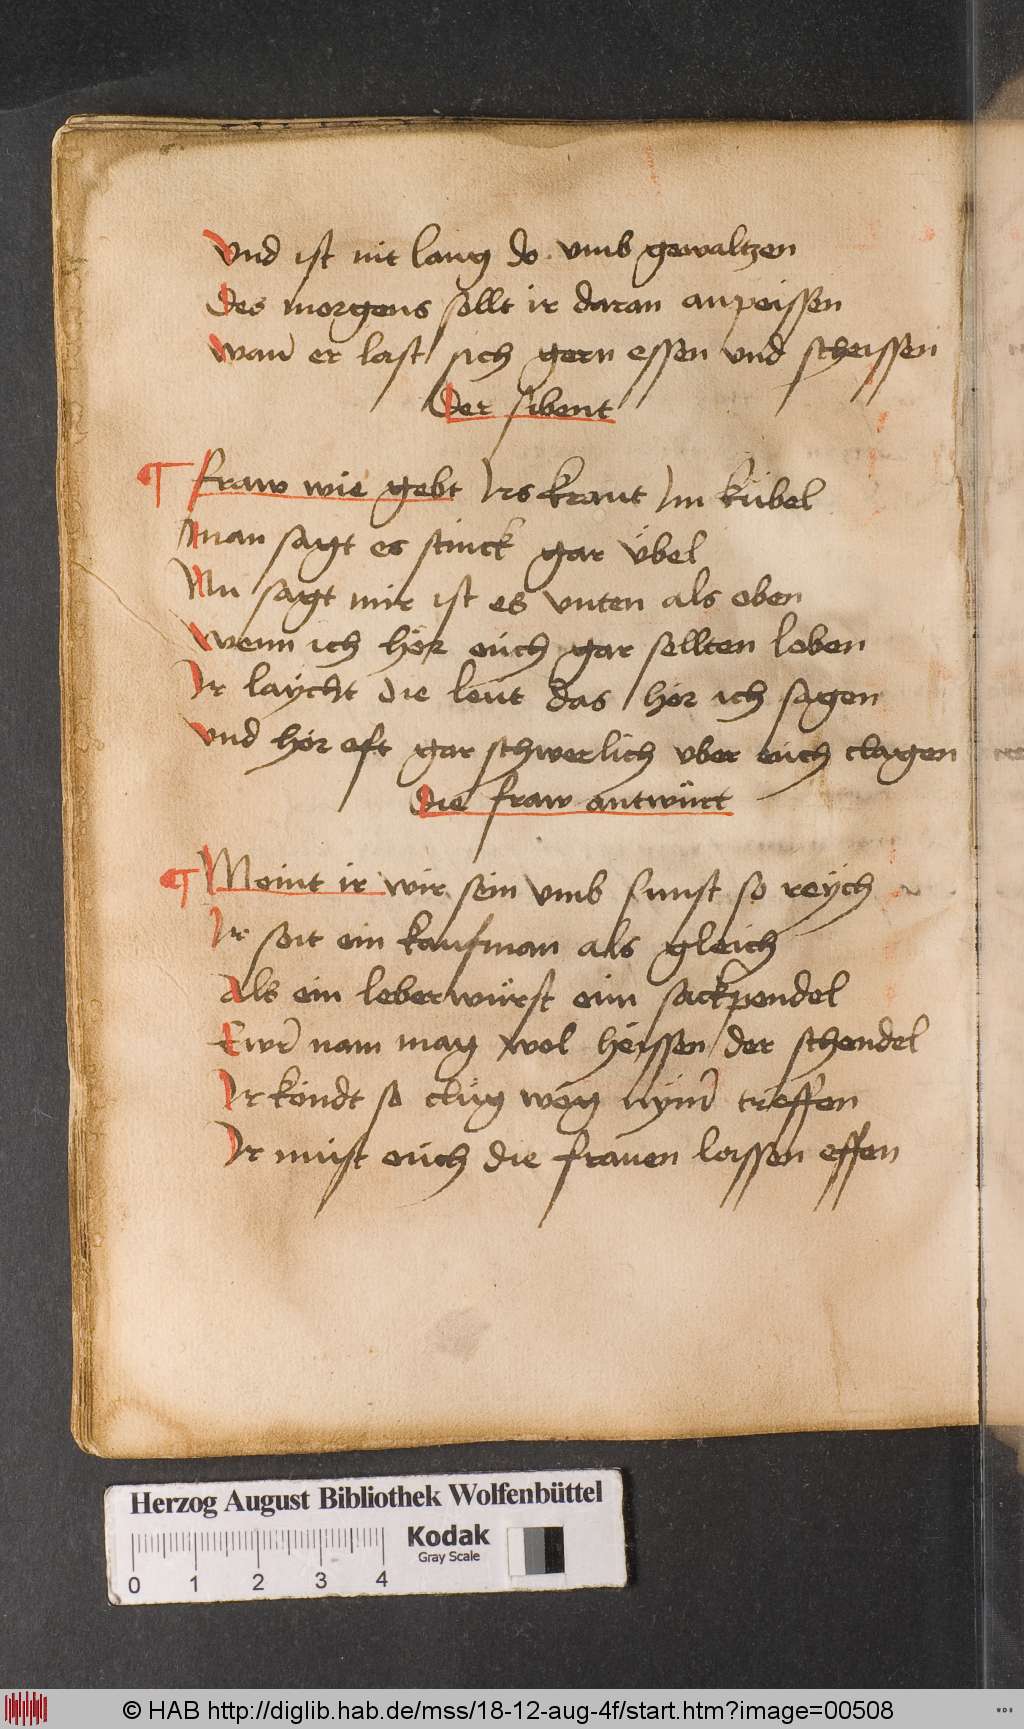 Vnd ist nit lang do vmb gewaltzen
Des morgens sollt ir daran anpeissen
wann er last sich gern essen vnd scheissen
Der sibent
¶ Fraw wie gebt Irs kraut Im kübel
Man sagt es stinck gar übel
Nu sagt mir ist es vnten als oben
Wenn ich hör eüch gar sellten loben
Ir laycht die leüt das hör ich sagen
Vnd hör oft gar schwerlich vber eüch clagen
Die fraw antwürt
¶ Meint ir wir sein vmb sunst so reych
Ir seit ein kaufman als gleich
Als ein leberwürst eim sackpendel
Ewr nam mag wol heissen der schendel
Ir köndt so clüg weg nymer treffen
Ir müst eüch die frauen lassen effen
Herzog August Bibliothek Wolfenbüttel
Kodak
Gray Scale
0 1 2 3 4
© HAB http://diglib.hab.de/mss/18-12-aug-4f/start.htm?image=00508